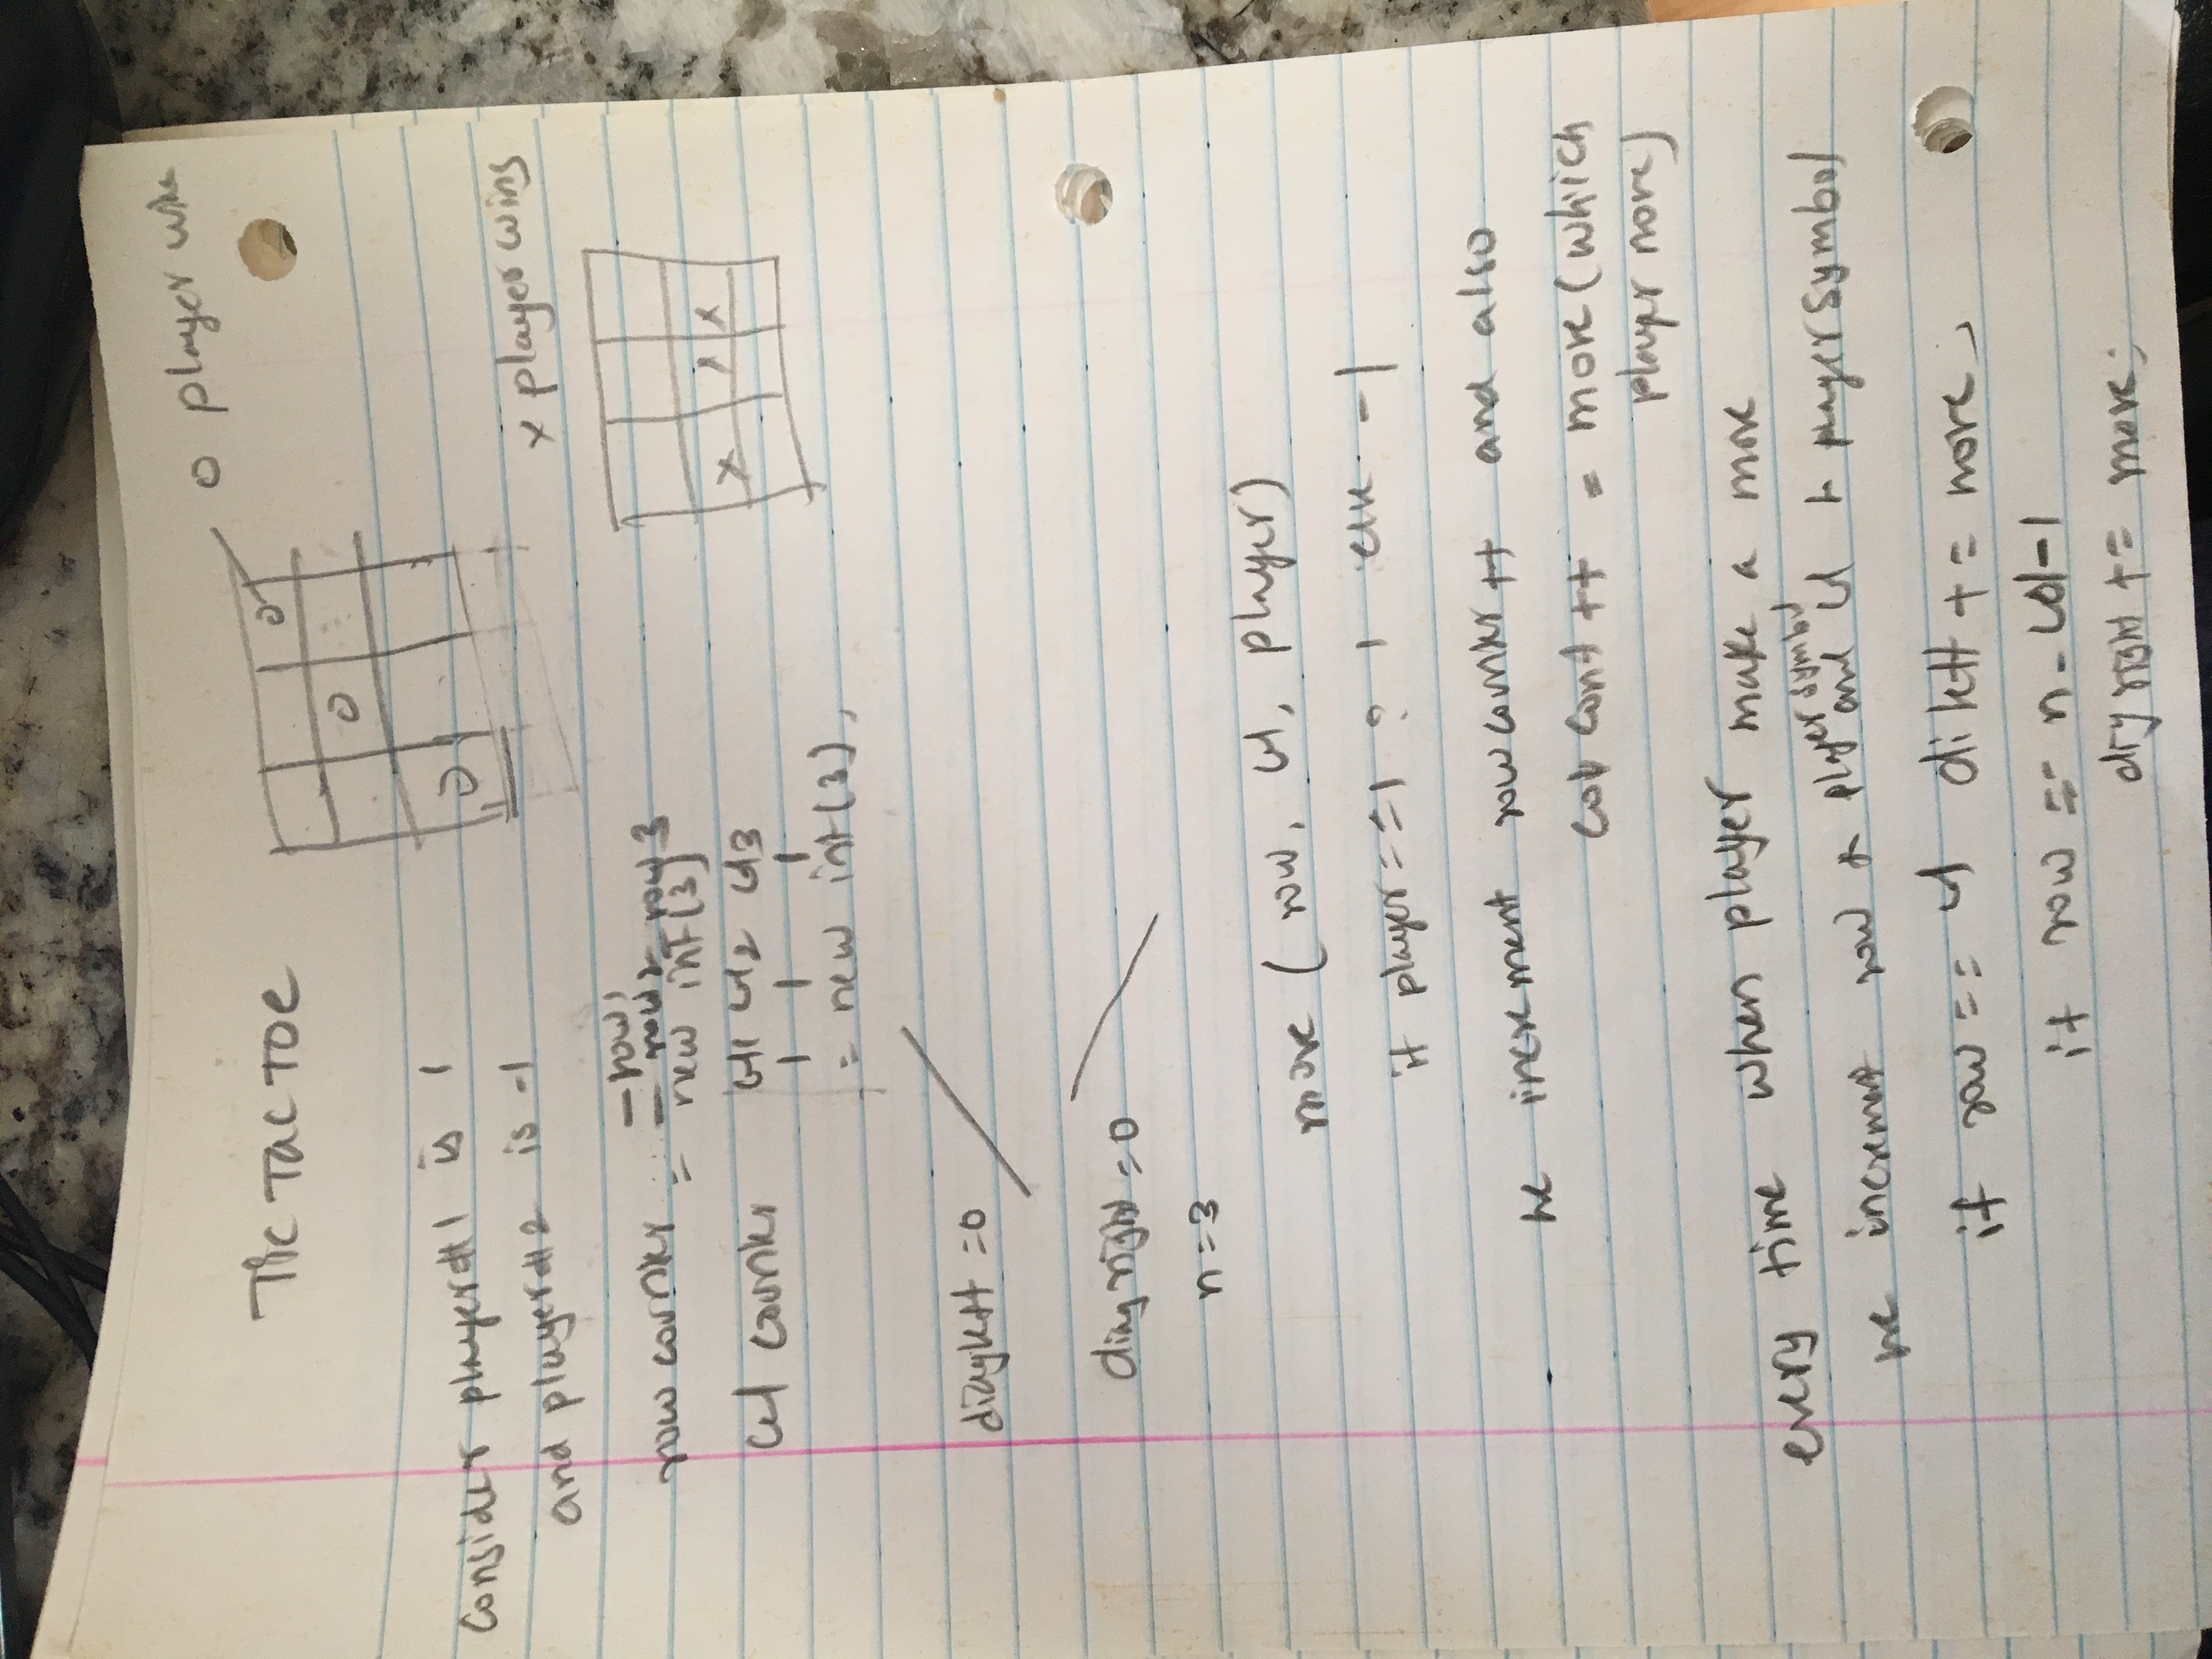 o player wins
Tic Tac Toe
o
o
o
Consider player#1 is 1
and player#2 is -1
x player wins
x x x
row counter = - row1
- row2 - row 3
new int(3)
col counter col1 col2 col3
= new int(3),
diagleft = 0
diag right = 0
n = 3
move ( row, col, player)
if player == 1 ? 1 else -1
we increment rowcounter ++ and also
col cont ++ = move (which
player move)
every time when player make a move
we increment row + player symbol and col + playerSymbol
if row == col dileft += move;
if row == n - col - 1
dig right += move;